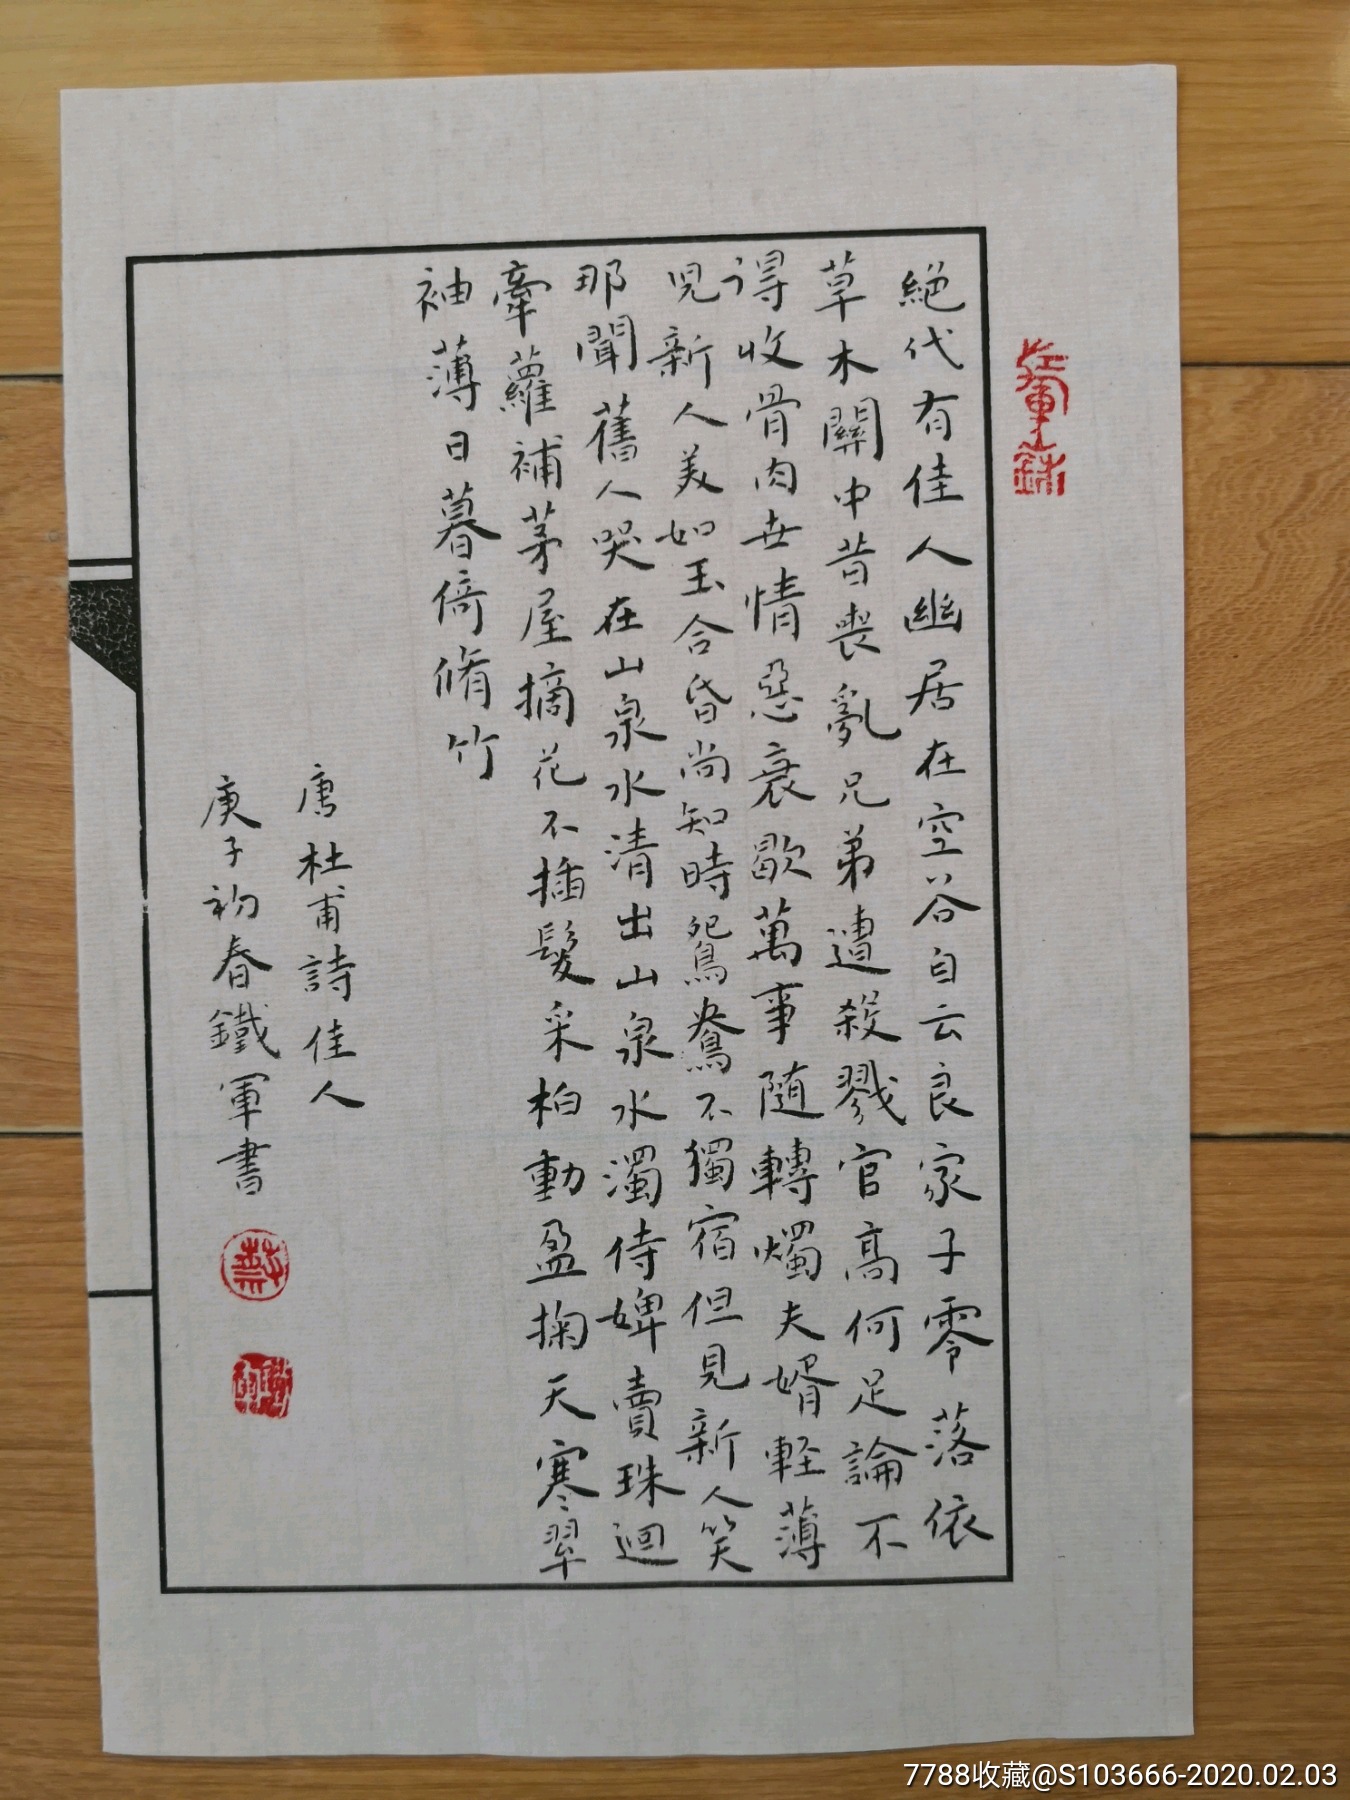 絕代有佳人幽居在空谷自云良家子零落依
草木關中昔喪亂兄弟遭殺戮官高何足論不
得收骨肉世情惡衰歇萬事隨轉燭夫婿輕薄
兒新人美如玉合昏尚知時鴛鴦不獨宿但見新人笑
那聞舊人哭在山泉水清出山泉水濁侍婢賣珠迴
牽蘿補茅屋摘花不插髮采柏動盈掬天寒翠
袖薄日暮倚脩竹
唐杜甫詩佳人
庚子初春鐵軍書
7788收藏@S103666-2020.02.03